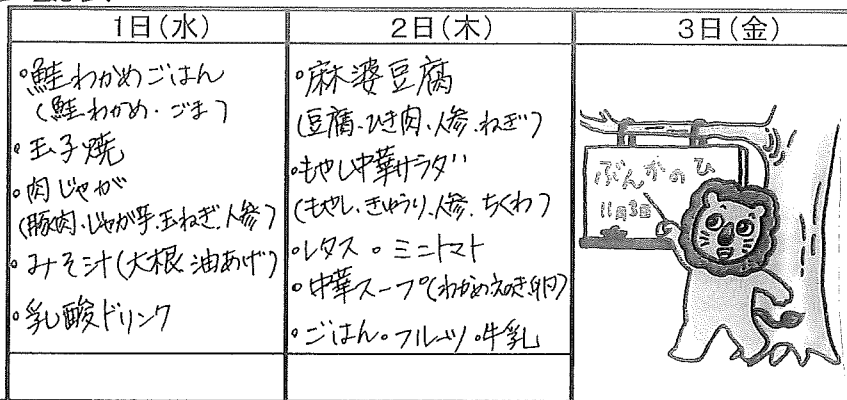 1日(水)
・鮭わかめごはん
(鮭わかめ・ごま)
・玉子焼
・肉じゃが
(豚肉・じゃが芋・玉ねぎ・人参)
・みそ汁(大根油あげ)
・乳酸ドリンク
2日(木)
・麻婆豆腐
(豆腐・ひき肉・人参・ねぎ)
・もやし中華サラダ
(もやし・きゅうり・人参・ちくわ)
・レタス・ミニトマト
・中華スープ(わかめえのき卵)
・ごはん・フルーツ・牛乳
3日(金)
ぶんかのひ
11月3日